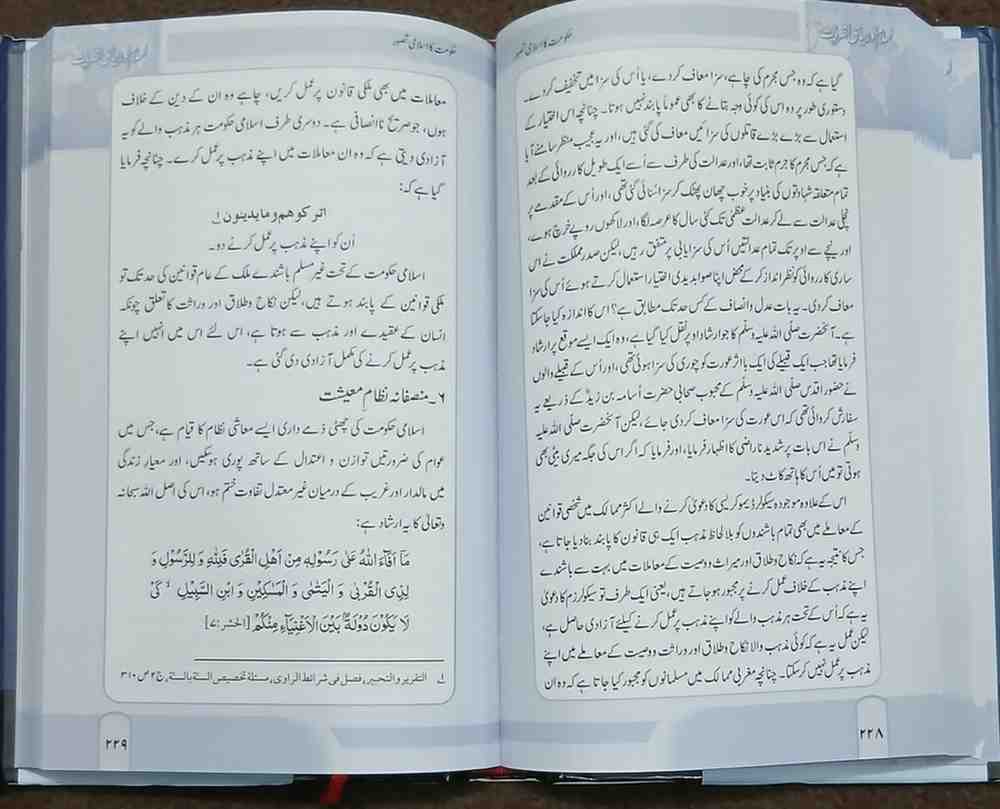 حکومت کا اسلامی تصور
گیا ہے کہ وہ جس مجرم کی چاہے، سزا معاف کردے، یا اُس کی سزا میں تخفیف کردے۔
دستوری طور پر وہ اس کی کوئی وجہ بتانے کا بھی عموماً پابند نہیں ہوتا۔ چنانچہ اس اختیار کے
استعمال سے بڑے بڑے قاتلوں کی سزائیں معاف کی گئی ہیں، اور یہ عجیب منظر سامنے آیا
ہے کہ جس مجرم کا جرم ثابت تھا، اور عدالت کی طرف سے اُسے ایک طویل کارروائی کے بعد
تمام متعلقہ شہادتوں کی بنیاد پر خوب چھان پھٹک کر سزا سُنائی گئی تھی، اور اُس کے مقدمے پر
نچلی عدالت سے لے کر عدالت عظمیٰ تک کئی سال کا عرصہ لگا، اور لاکھوں روپے خرچ ہوئے،
اور نیچے سے اوپر تک تمام عدالتیں اُس کی سزایابی پر متفق رہیں، لیکن صدر مملکت نے اس
ساری کارروائی کو نظر انداز کر کے محض اپنا صوابدیدی اختیار استعمال کرتے ہوئے اُس کی سزا
معاف کردی۔ یہ بات عدل و انصاف کے کس حد تک مطابق ہے؟ اس کا اندازہ کیا جا سکتا
ہے۔ آنحضرت صلی اللہ علیہ وسلم کا جو ارشاد اوپر نقل کیا گیا ہے، وہ ایک ایسے موقع پر ارشاد
فرمایا تھا جب ایک قبیلے کی ایک با اثر عورت کو چوری کی سزا ہوئی تھی، اور اُس کے قبیلے والوں
نے حضور اقدس صلی اللہ علیہ وسلم کے محبوب صحابی حضرت اُسامہ بن زیدؓ کے ذریعے یہ
سفارش کروائی تھی کہ اس عورت کی سزا معاف کردی جائے، لیکن آنحضرت صلی اللہ علیہ
وسلم نے اس بات پر شدید ناراضی کا اظہار فرمایا، اور فرمایا کہ اگر اس کی جگہ میری بیٹی بھی
ہوتی تو میں اُس کا ہاتھ کاٹ دیتا۔
اس کے علاوہ موجودہ سیکولر ڈیموکریسی کا دعویٰ کرنے والے اکثر ممالک میں شخصی قوانین
کے معاملے میں بھی تمام باشندوں کو بلا لحاظ مذہب ایک ہی قانون کا پابند بنادیا جاتا ہے،
جس کا نتیجہ یہ ہے کہ نکاح و طلاق اور میراث و وصیت کے معاملات میں بہت سے باشندے
اپنے مذہب کے خلاف عمل کرنے پر مجبور ہو جاتے ہیں، یعنی ایک طرف تو سیکولرزم کا دعویٰ
یہ ہے کہ اُس کے تحت ہر مذہب والے کو اپنے مذہب پر عمل کرنے کیلئے آزادی حاصل ہے،
لیکن عمل یہ ہے کہ کوئی مذہب والا نکاح و طلاق اور وراثت و وصیت کے معاملے میں اپنے
مذہب پر عمل نہیں کر سکتا۔ چنانچہ مغربی ممالک میں مسلمانوں کو مجبور کیا جاتا ہے کہ وہ ان
۲۲۸
حکومت کا اسلامی تصور
معاملات میں بھی ملکی قانون پر عمل کریں، چاہے وہ ان کے دین کے خلاف
ہوں، جو صریح ناانصافی ہے۔ دوسری طرف اسلامی حکومت ہر مذہب والے کو یہ
آزادی دیتی ہے کہ وہ ان معاملات میں اپنے مذہب پر عمل کرے۔ چنانچہ فرمایا
گیا ہے کہ:
اتركوهم وما يدينون ۱
اُن کو اپنے مذہب پر عمل کرنے دو۔
اسلامی حکومت کے تحت غیر مسلم باشندے ملک کے عام قوانین کی حد تک تو
ملکی قوانین کے پابند ہوتے ہیں، لیکن نکاح و طلاق اور وراثت کا تعلق چونکہ
انسان کے عقیدے اور مذہب سے ہوتا ہے، اس لئے اس میں انہیں اپنے
مذہب پر عمل کرنے کی مکمل آزادی دی گئی ہے۔
۶۔ منصفانہ نظام معیشت
اسلامی حکومت کی چھٹی ذمے داری ایسے معاشی نظام کا قیام ہے، جس میں
عوام کی ضرورتیں توازن و اعتدال کے ساتھ پوری ہو سکیں، اور معیار زندگی
میں مالدار اور غریب کے درمیان غیر معتدل تفاوت ختم ہو، اس کی اصل اللہ سبحانہ
وتعالیٰ کا یہ ارشاد ہے:
مَآ اَفَآءَ اللّٰهُ عَلٰى رَسُوْلِهٖ مِنْ اَهْلِ الْقُرٰى فَلِلّٰهِ وَ لِلرَّسُوْلِ وَ
لِذِى الْقُرْبٰى وَ الْيَتٰمٰى وَ الْمَسٰكِيْنِ وَ ابْنِ السَّبِيْلِ ۙ كَىْ
لَا يَكُوْنَ دُوْلَةًۢ بَيْنَ الْاَغْنِيَآءِ مِنْكُمْ [الحشر:۷]
۱ التقرير والتحبير، فصل فی شرائط الراوی، مسئلة تخصيص السنة بالسنة، ج۲ ص۳۱۰
۲۲۹